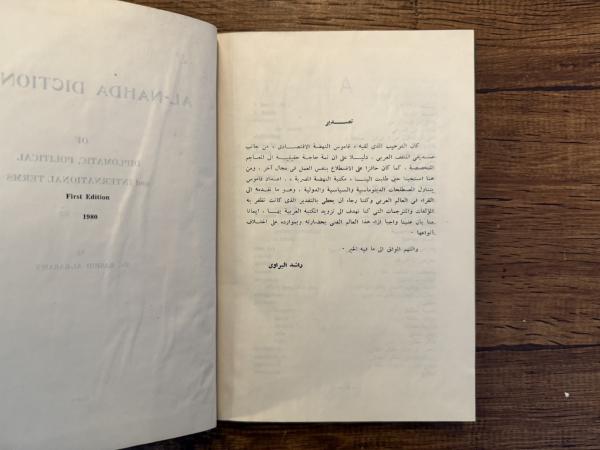 First Edition
1980
تصدير
كان الترحيب الذى لقيه « قاموس النهضة الاقتصادى » من جانب
المثقف العربى ، دليلا على ان ثمة حاجة حقيقية الى المعاجم
المتخصصة ، كما كان حافزا على الاضطلاع بنفس العمل فى مجال آخر . ومن
هنا استجبنا حين طلبت الينا « مكتبة النهضة المصرية » ، اعداد قاموس
يتناول المصطلحات الدبلوماسية والسياسية والدولية ، وهو ما نقدمه الى
القراء فى العالم العربى وكلنا رجاء أن يحظى بالتقدير الذى كانت تظفر به
المؤلفات والمترجمات التى كنا نهدف الى تزويد المكتبة العربية بهـا ، ايمانا
منا بأن علينا واجبا ازاء هذا العالم الغنى بحضارته وبموارده على اختلاف
أنواعها .
واللهم الموفق الى ما فيه الخير .
راشد البراوى